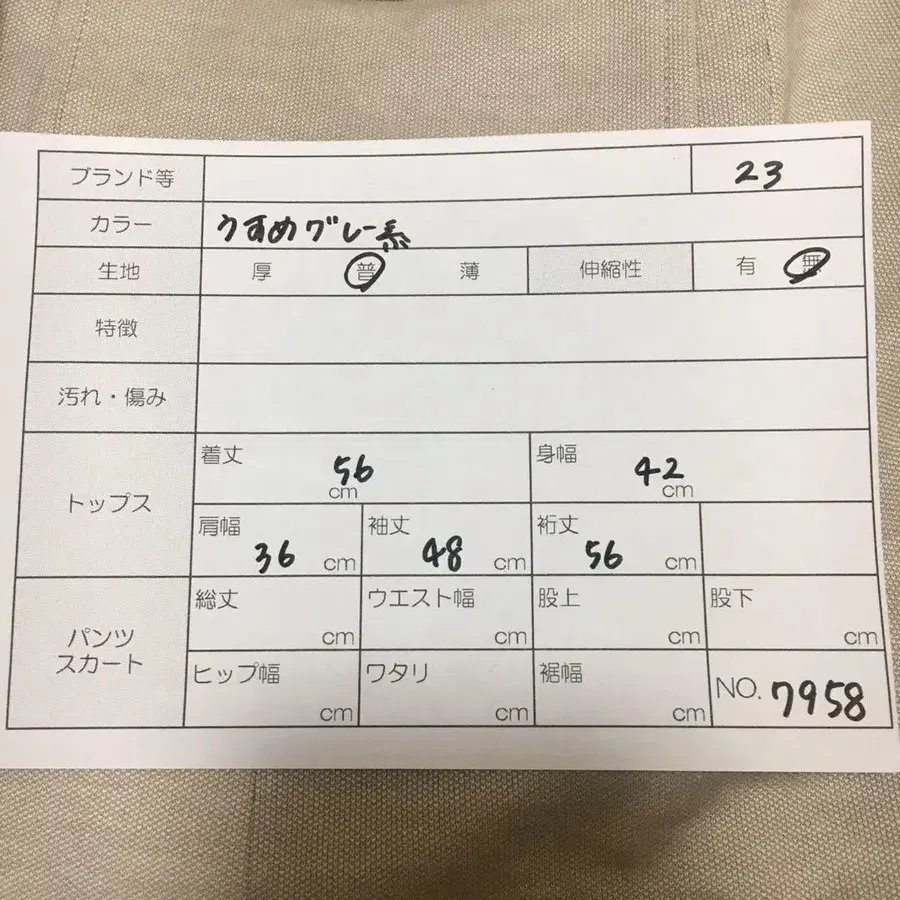 ブランド等 23
カラー うすめグレー系
生地 厚 普 薄 伸縮性 有 無
特徴
汚れ・傷み
トップス
着丈 56 cm 身幅 42 cm
肩幅 36 cm 袖丈 48 cm 裄丈 56 cm
パンツ
スカート
総丈 cm ウエスト幅 cm 股上 cm 股下 cm
ヒップ幅 cm ワタリ cm 裾幅 cm NO. 7958